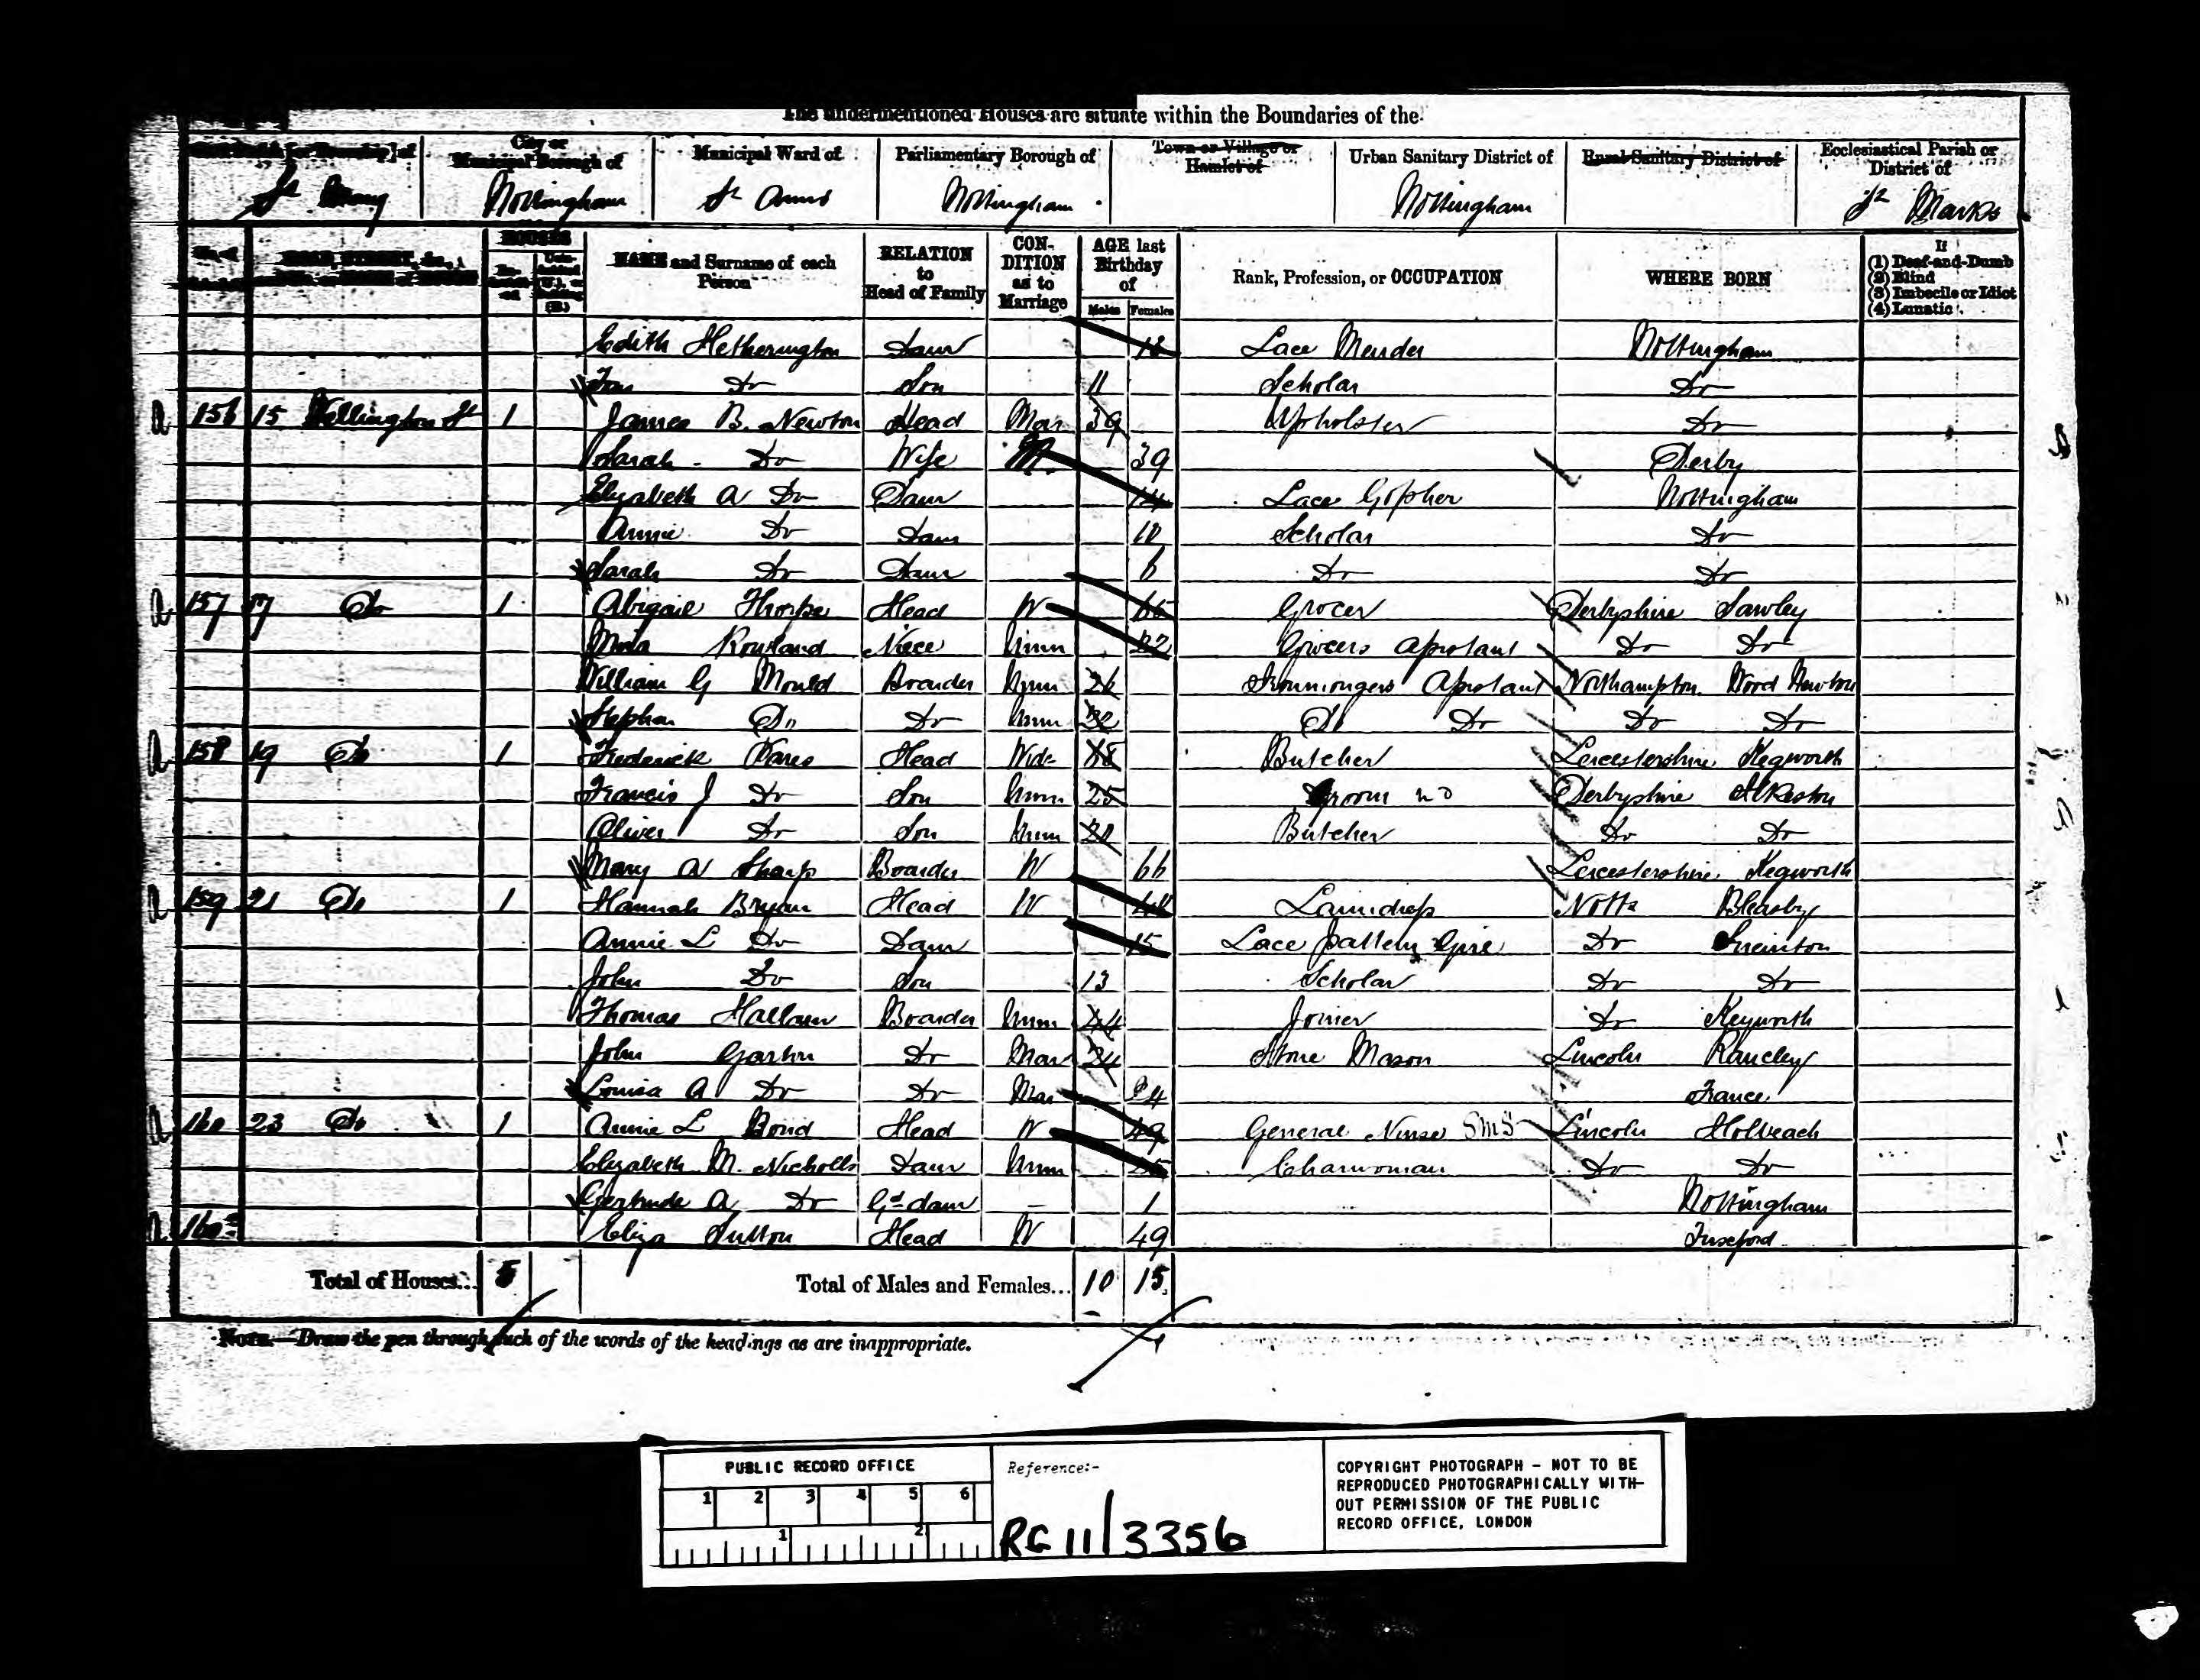 The undermentioned Houses are situate within the Boundaries of the
City or Municipal Borough of
Municipal Ward of
Parliamentary Borough of
Town or Village or Hamlet of
Urban Sanitary District of
Rural Sanitary District of
Ecclesiastical Parish or District of
St Mary Nottingham St Anns Nottingham Nottingham St Marks
HOUSES
NAME and Surname of each Person
RELATION to Head of Family
CONDITION as to Marriage
AGE last Birthday of
Males Females
Rank, Profession, or OCCUPATION
WHERE BORN
If
(1) Deaf-and-Dumb
(2) Blind
(3) Imbecile or Idiot
(4) Lunatic
Edith Hetherington Daur 18 Lace Mender Nottingham
Do Son 11 Scholar Do
156 15 Wellington St 1 James B. Newton Head Mar 39 Upholster Do
Sarah Do Wife M 39 Derby
Elizabeth A Do Daur 14 Lace Gopher Nottingham
Annie Do Daur 10 Scholar Do
Sarah Do Daur 6 Do Do
157 17 Do 1 Abigail Thorpe Head W 65 Grocer Derbyshire Sawley
Rowland Niece Unm 22 Grocers Asistant Do Do
William G Mould Boarder Unm 26 Ironmongers Asistant Northampton Wood Newton
Stephen Do Do Unm Do Do Do Do
158 19 Do 1 Frederick Head Wid Butcher Leicestershire Kegworth
Francis J Do Son Unm 25 Groom Derbyshire Ilkeston
Oliver Do Son Unm Butcher Do Do
Mary A Sharp Boarder W 66 Leicestershire Kegworth
159 21 Do 1 Hannah Bryan Head W Laundress Notts Bleasby
Annie L Do Daur 15 Lace pattern Girl Do Sneinton
John Do Son 13 Scholar Do Do
Thomas Hallam Boarder Unm 44 Joiner Do Keyworth
John Garton Do Mar 24 Stone Mason Lincoln
Louisa A Do Do Mar 24 France
160 23 Do 1 Annie L Bond Head W 49 General Nurse SMS Lincoln Holbeach
Elizabeth M. Nicholls Daur Unm 25 Charwoman Do Do
Gertrude A Do Gd daur 1 Nottingham
160 Eliza Sutton Head W 49 Tuxford
Total of Houses... 5 Total of Males and Females... 10 15
Note.—Draw the pen through such of the words of the headings as are inappropriate.
PUBLIC RECORD OFFICE
1 2 3 4 5 6
1 2
Reference:-
RG 11/3356
COPYRIGHT PHOTOGRAPH - NOT TO BE
REPRODUCED PHOTOGRAPHICALLY WITH-
OUT PERMISSION OF THE PUBLIC
RECORD OFFICE, LONDON